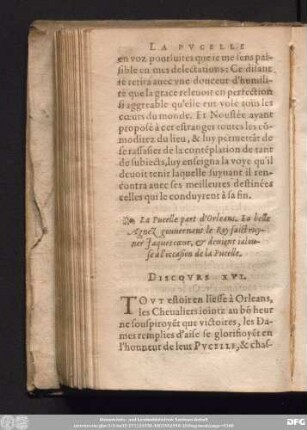 LA PVCELLE
en voz poursuites que ie me sens pai-
sible en mes delectations: Ce disant
se retira auec vne douceur d'humili-
té que la grace releuoit en perfection
si aggreable qu'elle eut volé tous les
cœurs du monde. Et Noustée ayant
proposé à cet estranger toutes les cō-
moditez du lieu, & luy permetāt de
se rassasier de la contēplation de tant
de subiects, luy enseigna la voye qu'il
deuoit tenir laquelle suyuant il ren-
contra auec ses meilleures destinées
celles qui le conduyrent à sa fin.
La Pucelle part d'Orleans. La belle
Agnez gouuernant le Roy faict ruy-
ner Iaquecœur, & deuient ialou-
se à l'occasion de la Pucelle.
DISCOVRS XVI.
TOVT estoit en liesse à Orleans,
les Cheualiers iointz au bō heur
ne souspiroyēt que victoires, les Da-
mes remplies d'aise se glorifioyēt en
l'honneur de leur PVCELLE, & chas-
DFG